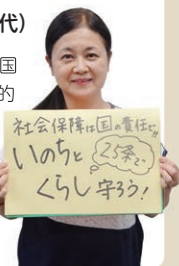 代)
国
的
社会保障は国の責任で!!
いのちと
25条で
くらし守ろう!